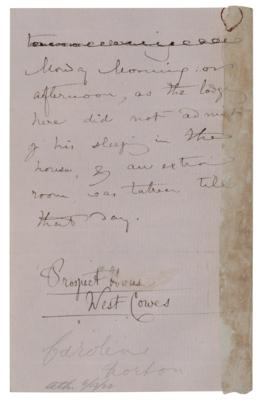 Monday Morning, or
afternoon, as the lodg
here did not admit
of his sleeping in the
house, & an extra
room was taken till
that day.
Prospect House
West Cowes
Caroline
Norton